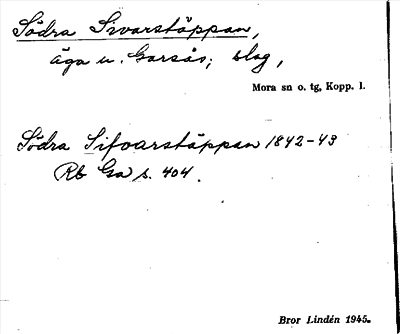 Södra Sivarstäppan,
äga u. Garsås; slog,
Mora sn o. tg, Kopp. l.
Södra Sifvarstäppan 1842-43
Rb Ga s. 404.
Bror Lindén 1945.